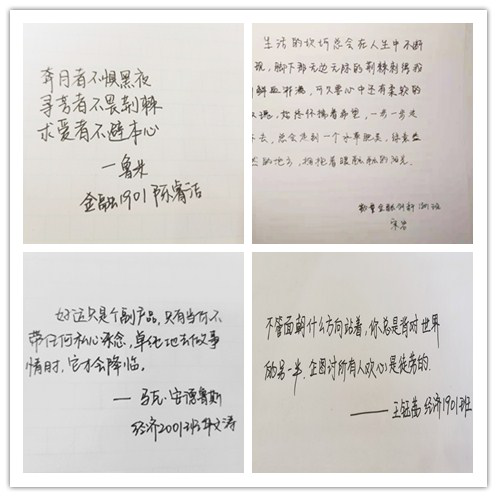 奔月者不惧黑夜
寻芳者不畏荆棘
求爱者不避本心
—鲁米
金融1901 陈睿洁
生活的坎坷总会在人生中不断
现,脚下都无边无际的荆棘刺得我
鲜血淋漓,可只要心中还有柔软的
始终怀揣着希望,一步一步走
下去,总会走到一个水草肥美、绿意盎
然的地方,拥抱着暖融融的阳光
好运只是个副产品,只有当你不
带任何私心杂念,单纯地去做事
情时,它才会降临。
—马克·安德鲁斯
经济2001班
不管面朝什么方向站着,你总是背对世界
的另一半,企图讨所有人欢心是徒劳的.
——王钰茜 经济1901班